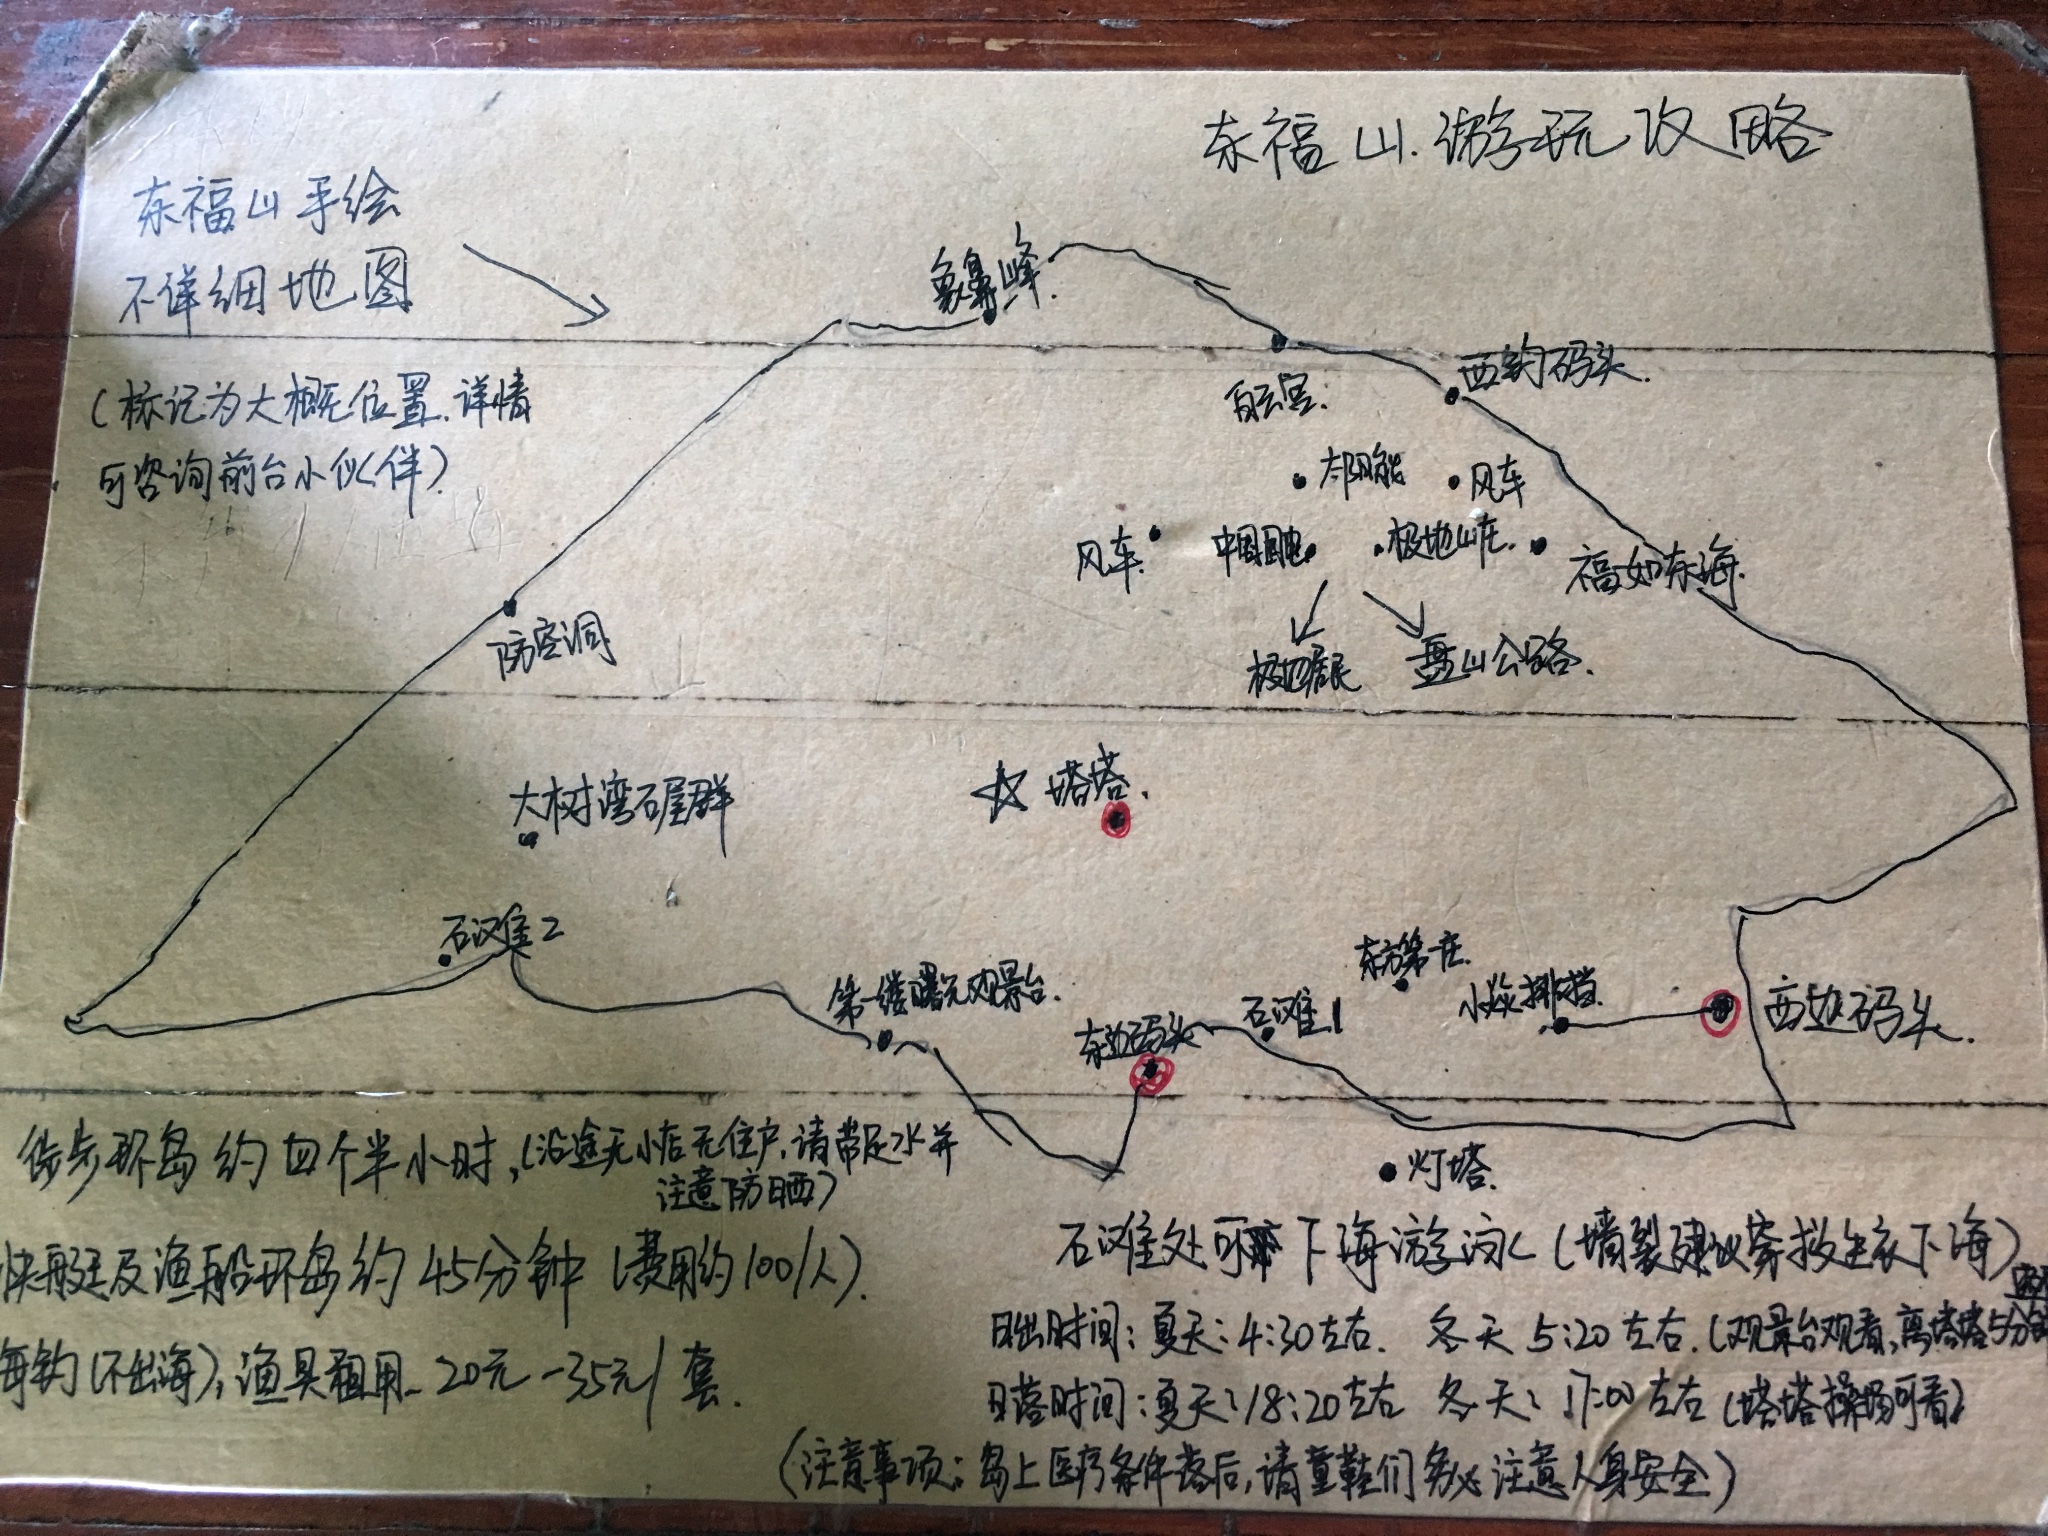 东福山.游玩攻略
东福山手绘
不详细地图
(标记为大概位置.详情
可咨询前台小伙(伴)
象鼻峰.
西钓码头.
白云宫.
太阳能
风车
风车.
中国国电
极地山庄.
福如东海.
极地居民
盘山公路.
防空洞
大树湾石屋群
塔塔.
石滩2
第一缕曙光观景台.
东边码头
石滩1
东方第一庄.
小焱排挡.
西边码头.
灯塔.
徒步环岛约四个半小时,(沿途无小店无住户,请带足水并
注意防晒)
快艇及渔船环岛约45分钟(费用约100/人).
海钓(不出海),渔具租用 20元-35元/套.
石滩处可下海游泳(墙裂建议穿救生衣下海)
日出时间:夏天:4:30左右. 冬天 5:20左右.(观景台观看,离塔塔5分钟
日落时间:夏天:18:20左右 冬天:17:00左右(塔塔操场可看)
(注意事项:岛上医疗条件落后,请童鞋们务必注意人身安全)